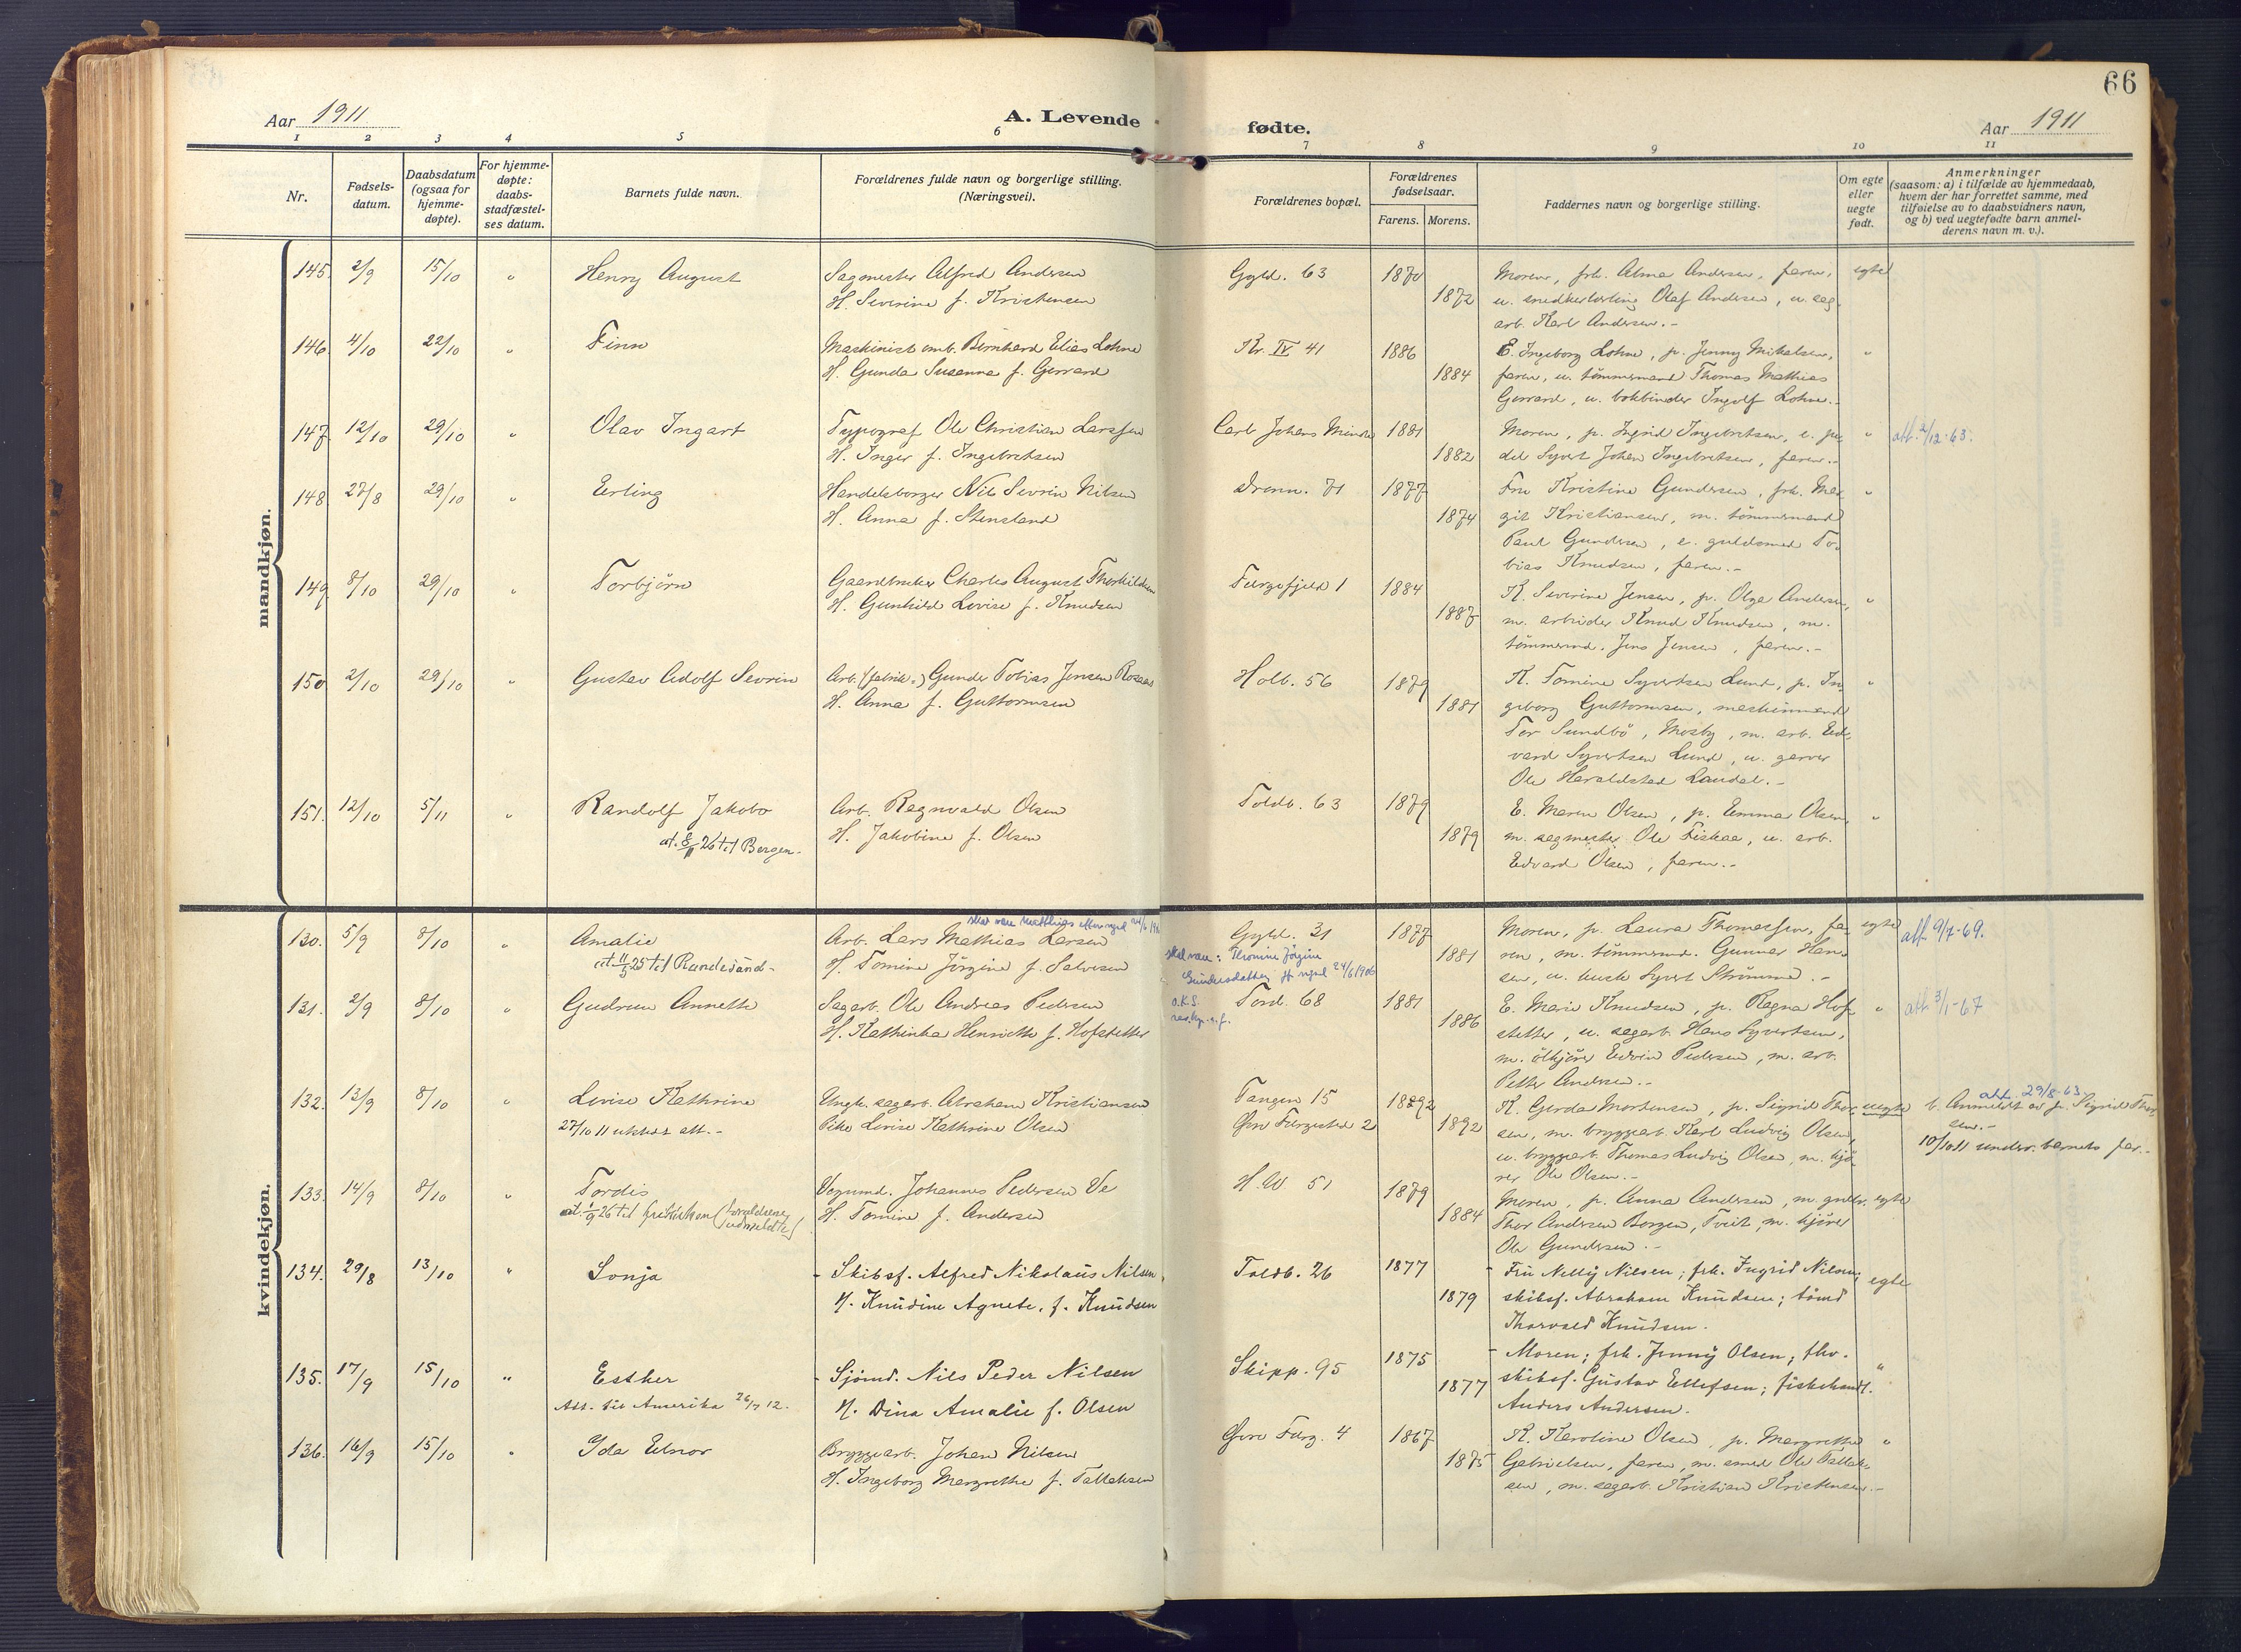 66
Aar 1911
A. Levende
fødte.
Aar 1911
1 2 3 4 5 6 7 8 9 10 11
Nr.
Fødsels-
datum.
Daabsdatum
(ogsaa for
hjemme-
døpte).
For hjemme-
døpte:
daabs-
stadfæstel-
ses datum.
Barnets fulde navn.
Forældrenes fulde navn og borgerlige stilling.
(Næringsvei).
Forældrenes bopæl.
Forældrenes
fødselsaar.
Farens. Morens.
Faddernes navn og borgerlige stilling.
Om egte
eller
uegte
født.
Anmerkninger
(saasom: a) i tilfælde av hjemmedaab,
hvem der har forrettet samme, med
tilføielse av to daabsvidners navn,
og b) ved uegtefødte barn anmel-
derens navn m. v.).
mandkjøn.
145. 2/9 15/10 " Henry August
Sagmester Alfred Andersen
H. Severine f. Kristensen
Gyld. 63 1870
1872
Moren, frk. Alma Andersen, faren, egte
u. snedkerlærling Olaf Andersen, u. sag-
arb. Karl Andersen.-
146. 4/10 22/10 " Finn
Maskinist omb. Bernhard Elias Lohne
H. Gunda Susanna f. Gerrard
Kr. IV 41 1886
1884
E. Ingeborg Lohne, p. Jenny Mikalsen, "
faren, u. tømmermand Thomas Mathias
Gerrard, u. bokbinder Ingolf Lohne.-
147. 12/10 29/10 " Olav Ingart
Typograf Ole Christian Larssen
H. Inger f. Ingebretsen
Carl Johans Minde 1881
1882
Moren, p. Ingrid Ingebretsen, e. pe- "
del Syvert Johan Ingebretsen, faren.-
att. 2/12-63.
148. 27/8 29/10 " Erling
Handelsborger Nils Severin Nilsen
H. Anna f. Stensland
Dronn. 71 1877
1874
Fru Kristine Gundersen, frk. Mar- "
git Kristiansen, m. tømmermand
Paul Gundersen, e. guldsmed To-
bias Knudsen, faren.-
149. 8/10 29/10 " Torbjørn
Gaardbruker Charles August Thorkildsen
H. Gunhild Lovise f. Knudsen
Fargefjeld 1 1884
1887
K. Severine Jensen, p. Olga Andersen, "
m. arbeider Knud Knudsen, m.
tømmermd. Jens Jensen, faren.-
150 2/10 29/10 " Gustav Adolf Sevrin
Arb. (fabrik-) Gunder Tobias Jensen Rosaas
H. Anna f. Guttormsen
Holb. 56 1879
1881
K. Tomine Syvertsen Lund, p. In- "
geborg Guttormsen, maskinmand
Tor Sundbø, Mosby, m. arb. Ed-
vard Syvertsen Lund, u. garver
Ole Haraldstad Laudal.-
151. 12/10 5/11 " Randolf Jakobo
at. 8/11 26 til Bergen.
Arb. Ragnvald Olsen
H. Jakobine f. Olsen
Toldb. 63 1879
1879
E. Maren Olsen, p. Emma Olsen, "
m. sagmester Ole Fiskaa, u. arb.
Edvard Olsen, faren.-
kvindekjøn.
130. 5/9 8/10 " Amalie
at 11/5 25 til Randesund-
Arb. Lars Mathias Larsen
H. Tomine Jørgine f. Salvesen
Gyld. 31 1877
skal være: Thomine Jørgine
Gundersdatter
24/6 1906
1881
Moren, p. Laura Thomassen, fa- egte
ren, m. tømmermd. Gunnar Han-
sen, u. Syvert Strømme.-
att. 9/7-69.
131. 2/9 8/10 " Gudrun Annette
Sagarb. Ole Andreas Pedersen
H. Kathinka Henriette f. Hofstetter
O.K.S.
res.kap.
Tord. 68 1881
1886
E. Marie Knudsen, p. Ragna Hof- "
stetter, u. sagarb. Hans Syvertsen,
m. ølkjører Edvin Pedersen, m. arb.
Petter Andersen.-
att. 3/1-67
132. 13/9 8/10 " Lovise Kathrine
27/10 11 utstedt att.-
Ungk. sagarb. Abraham Kristiansen
Pike Lovise Kathrine Olsen
Tangen 15 1892
Øvre Færgested 2 1892
K. Gerda Mortensen, p. Sigrid Thor- uegte
sen, m. bryggearb. Karl Ludvig Olsen,
u. bryggearb. Thomas Ludvig Olsen, m. kjø-
rer Ole Olsen.-
att. 29/8-63
b. Anmeldt av p. Sigrid Thor-
sen.-
10/10 11 underr. barnets far.-
133. 14/9 8/10 " Tordis
at. 1/9 26 til frikirken (forældrene
udmeldte)
Vognmd. Johannes Pedersen Ve
H. Tomine f. Andersen
H.W. 51 1879
1884
Moren, p. Anna Andersen, m. grdbr. egte
Thor Andersen Borgen, Tveit, m. kjører
Ole Gundersen.-
134. 29/8 13/10 " Sonja
- Skibsf. Alfred Nikolaus Nilsen
H. Knudine Agnete, f. Knudsen
Toldb. 26 1877
1879
- Fru Nelly Nilsen; frk. Ingrid Nilsen; egte
skibsf. Abraham Knudsen; tømd
Thorvald Knudsen.
135. 17/9 15/10 " Esther
Att. til Amerika 26/7 12.
- Sjømd. Nils Peder Nilsen
H. Dina Amalie f. Olsen
Skipp. 95 1875
1877
- Moren; frk. Jenny Olsen; fhv. "
skibsf. Gustav Ellefsen; fiskehandl.
Anders Andersen.
136. 16/9 15/10 " Ida Elnor
Bryggearb. Johan Nilsen
H. Ingeborg Margrethe f. Tallaksen
Øvre Færg. 4 1867
1875
K. Karoline Olsen, p. Margrethe "
Gabrielsen, faren, m. smed Ole Tallak-
sen, m. sagarb. Kristian Kristensen.-